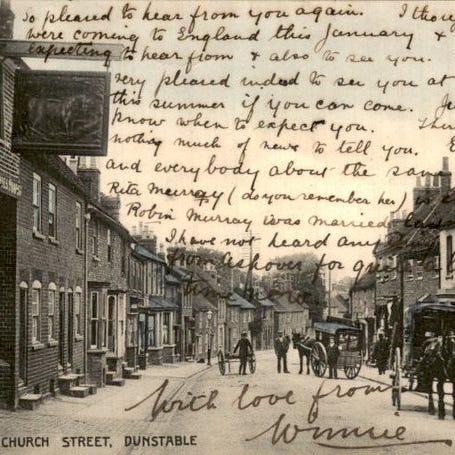 So pleased to hear from you again. I thou
were coming to England this January &
expecting to hear from & also to see you.
very pleased indeed to see you at
this summer if you can come. Ju
know when to expect you. Ther
nothing much of news to tell you. E
and everybody about the same
Rita Murray (do you remember her) is
Robin Murray was married
I have not heard any
from Ashover for quite a
time now.
With love from
Winnie
CHURCH STREET, DUNSTABLE